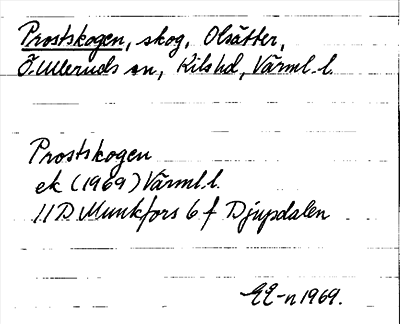 Prostskogen, skog, Olsätter,
Ö. Ulleruds sn, Kils hd, Värml. l.
Prostskogen
ek (1969) Värml. l.
11D Munkfors 6 f Djupdalen
EE-n 1969.